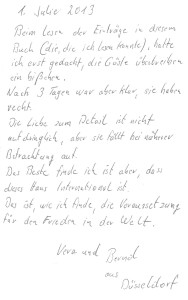 1. Julie 2013
Beim Lesen der Einträge in diesem
Buch (die, die ich lesen konnte), hatte
ich erst gedacht, die Gäste übertreiben
ein bißchen.
Nach 3 Tagen war aber klar, sie haben
recht.
Die Liebe zum Detail ist nicht
aufdringlich, aber sie fällt bei näherer
Betrachtung auf.
Das Beste finde ich ist aber, dass
dieses Haus international ist.
Das ist, wie ich finde, die Voraussetzung
für den Frieden in der Welt.
Vera und Bernd
aus
Düsseldorf